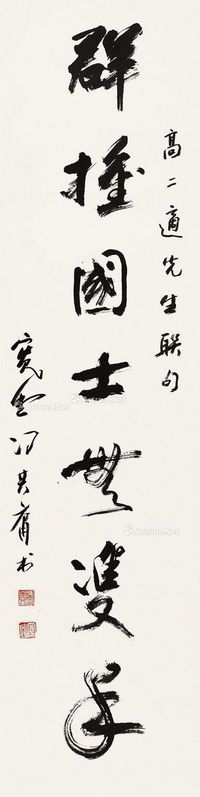 高二適先生联句
群推國士無雙手
寬堂冯其庸书